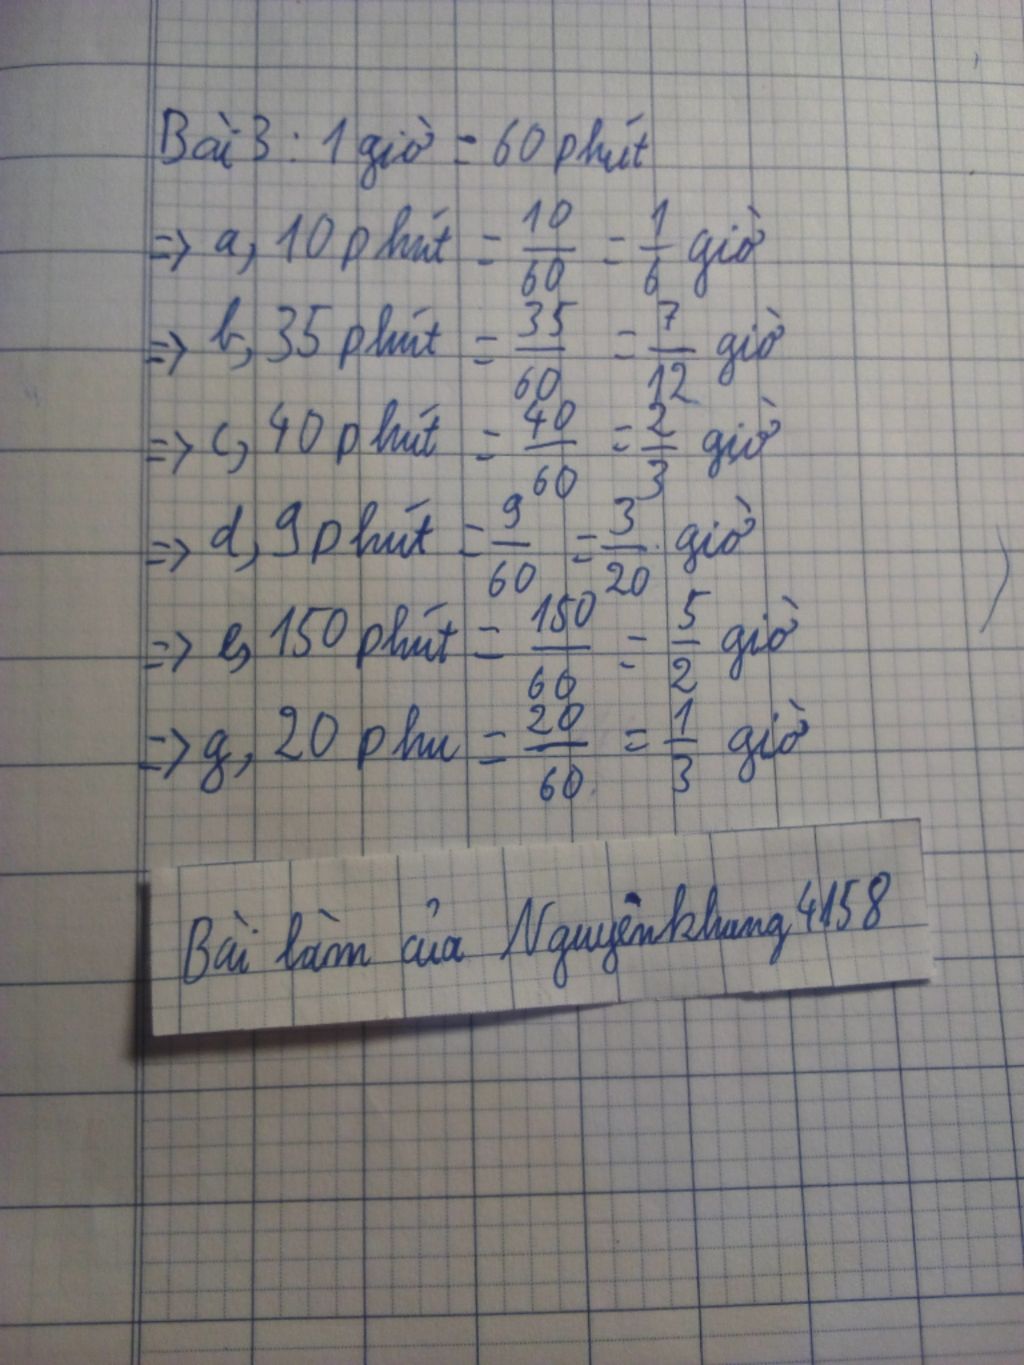 Bài 3: 1 giờ = 60 phút
=> a, 10 phút = 10/60 = 1/6 giờ
=> b, 35 phút = 35/60 = 7/12 giờ
=> c, 40 phút = 40/60 = 2/3 giờ
=> d, 9 phút = 9/60 = 3/20 giờ
=> e, 150 phút = 150/60 = 5/2 giờ
=> g, 20 phu = 20/60 = 1/3 giờ
Bài làm của Nguyênkhang4158